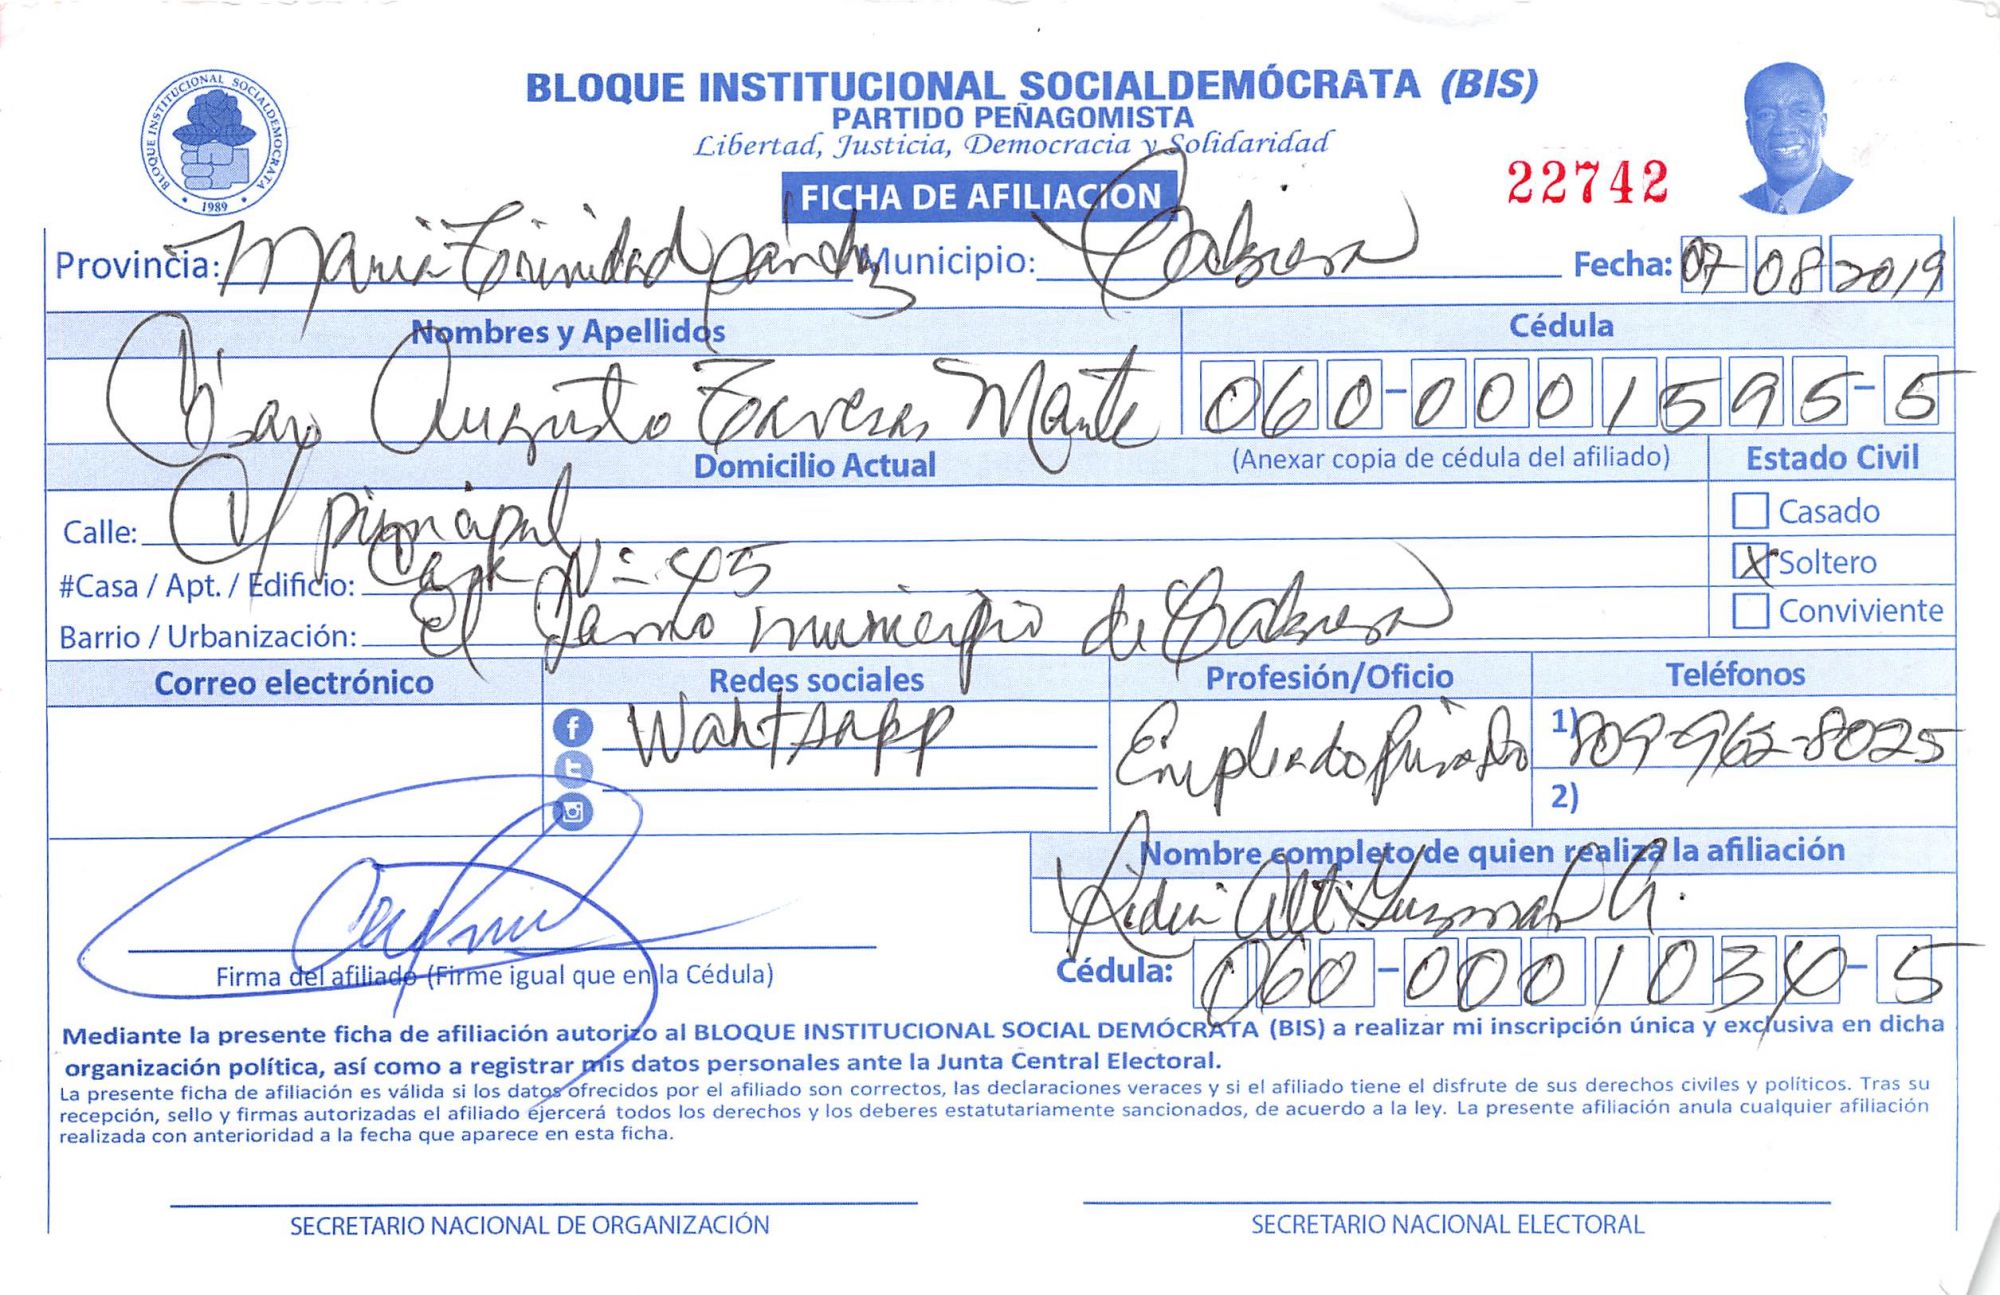 BLOQUE INSTITUCIONAL SOCIALDEMOCRATA
1989
BLOQUE INSTITUCIONAL SOCIALDEMÓCRATA (BIS)
PARTIDO PEÑAGOMISTA
Libertad, Justicia, Democracia y Solidaridad
FICHA DE AFILIACION
22742
Provincia: Maria Trinidad Sánchz Municipio: Cabrera Fecha: 07 08 2019
Nombres y Apellidos Cédula
Cesar Augusto Taveras Marte 060-0001595-5
Domicilio Actual (Anexar copia de cédula del afiliado) Estado Civil
Calle: C/ principal
Casado
#Casa / Apt. / Edificio: Casa Nº 45
X Soltero
Barrio / Urbanización: El Jamo municipio de Cabrera
Conviviente
Correo electrónico Redes sociales Profesión/Oficio Teléfonos
WahtsApp Empleado Privado 1) 809-962-8025
2)
Nombre completo de quien realiza la afiliación
Guzman A.
Firma del afiliado (Firme igual que en la Cédula) Cédula: 060-0001034-5
Mediante la presente ficha de afiliación autorizo al BLOQUE INSTITUCIONAL SOCIAL DEMÓCRATA (BIS) a realizar mi inscripción única y exclusiva en dicha
organización política, así como a registrar mis datos personales ante la Junta Central Electoral.
La presente ficha de afiliación es válida si los datos ofrecidos por el afiliado son correctos, las declaraciones veraces y si el afiliado tiene el disfrute de sus derechos civiles y políticos. Tras su
recepción, sello y firmas autorizadas el afiliado ejercerá todos los derechos y los deberes estatutariamente sancionados, de acuerdo a la ley. La presente afiliación anula cualquier afiliación
realizada con anterioridad a la fecha que aparece en esta ficha.
SECRETARIO NACIONAL DE ORGANIZACIÓN SECRETARIO NACIONAL ELECTORAL